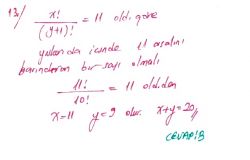 13/ x! / (y+1)! = 11 old. göre
yukarıda içinde 11 asalını
barındıran bir sayı olmalı
11! / 10! = 11 olduğdan
x=11 y=9 olur. x+y=20//
CEVAP: B